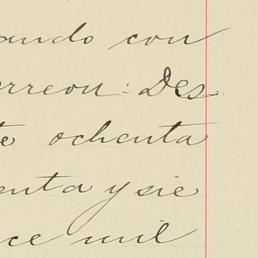 ando con
rreon: Des
te ochenta
enta y sie
ce mil